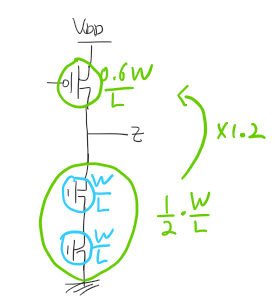 VDD
0.6W
L
Z
x1.2
W
L
1/2 · W/L
W
L